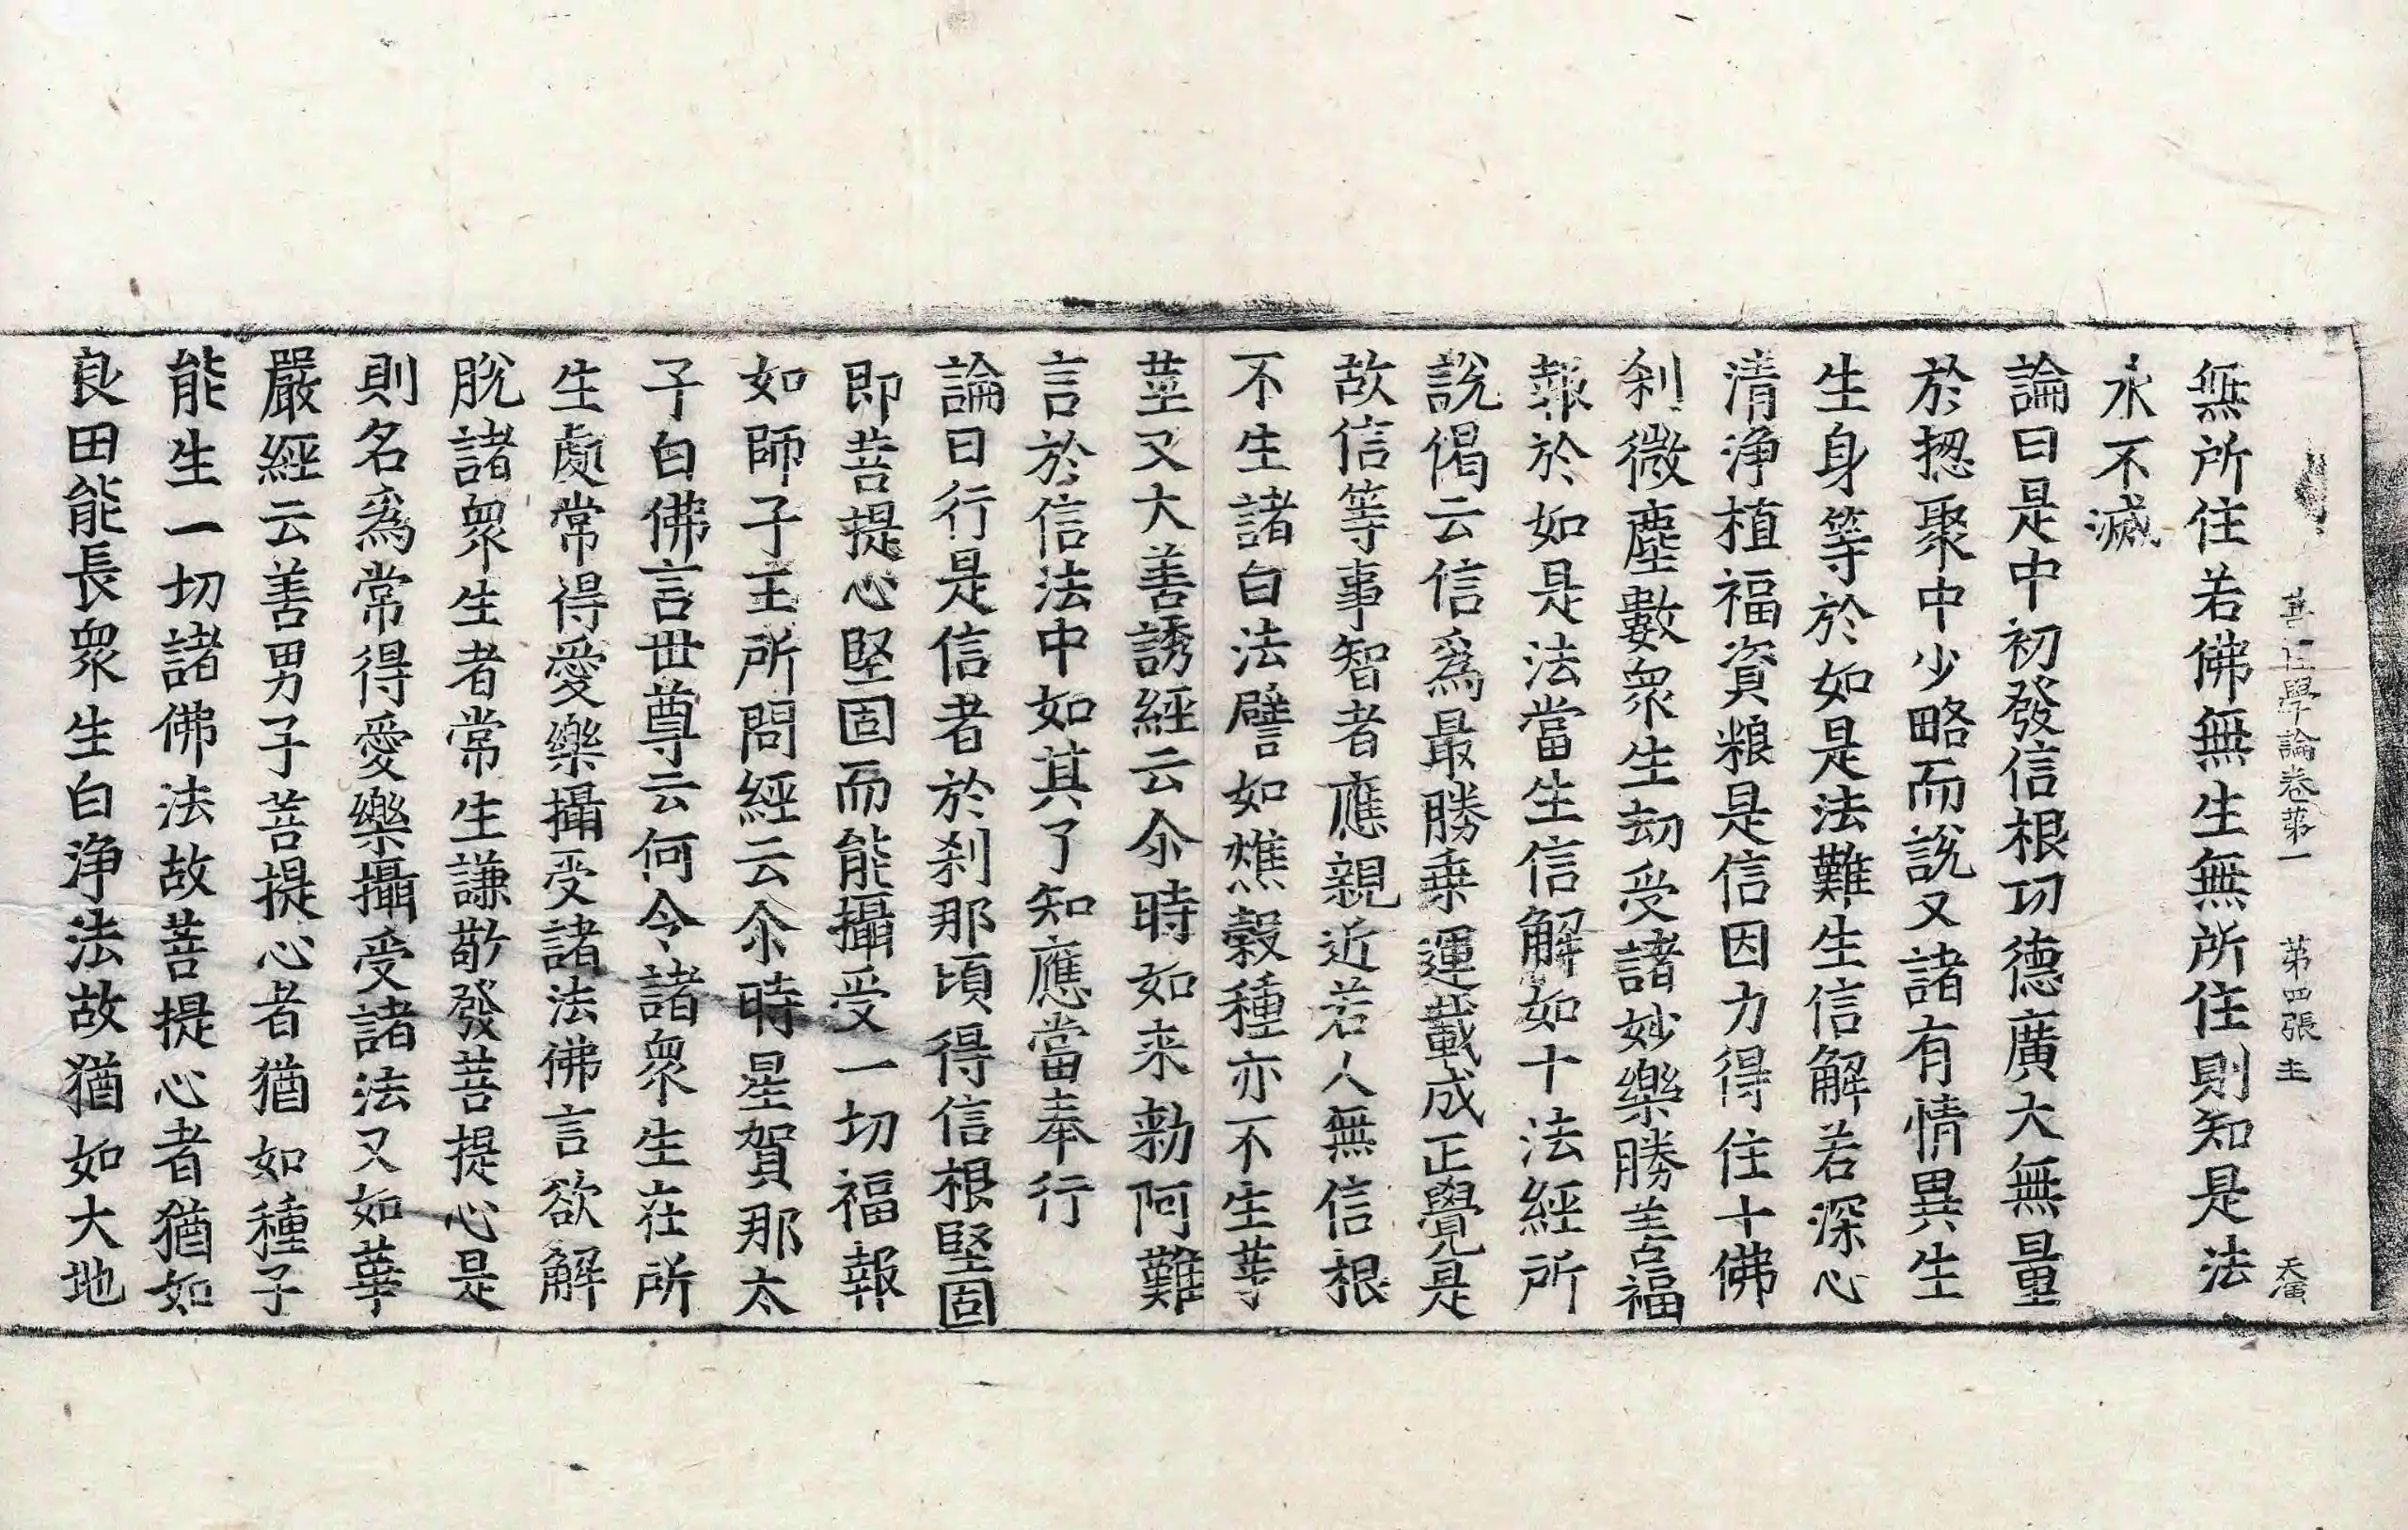 菩佐學論卷第一 第四張 圭 天演
無所住若佛無生無所住則知是法
永不滅
論曰是中初發信根功德廣大無量
於揔聚中少略而說又諸有情異生
生身等於如是法難生信解若深心
清淨植福資粮是信因力得住十佛
刹微塵數衆生劫受諸妙樂勝善福
報於如是法當生信解如十法經所
說偈云信爲最勝乗運載成正覺是
故信等事智者應親近若人無信根
不生諸白法譬如燋穀種亦不生芽
莖又大善誘經云尒時如来勑阿難
言於信法中如其了知應當奉行
論曰行是信者於刹那頃得信根堅固
即菩提心堅固而能攝受一切福報
如師子王所問經云尒時星賀那太
子白佛言世尊云何令諸衆生在所
生處常得愛樂攝受諸法佛言欲解
脫諸衆生者常生謙敬發菩提心是
則名爲常得愛樂攝受諸法又如華
嚴經云善男子菩提心者猶如種子
能生一切諸佛法故菩提心者猶如
良田能長衆生白淨法故猶如大地